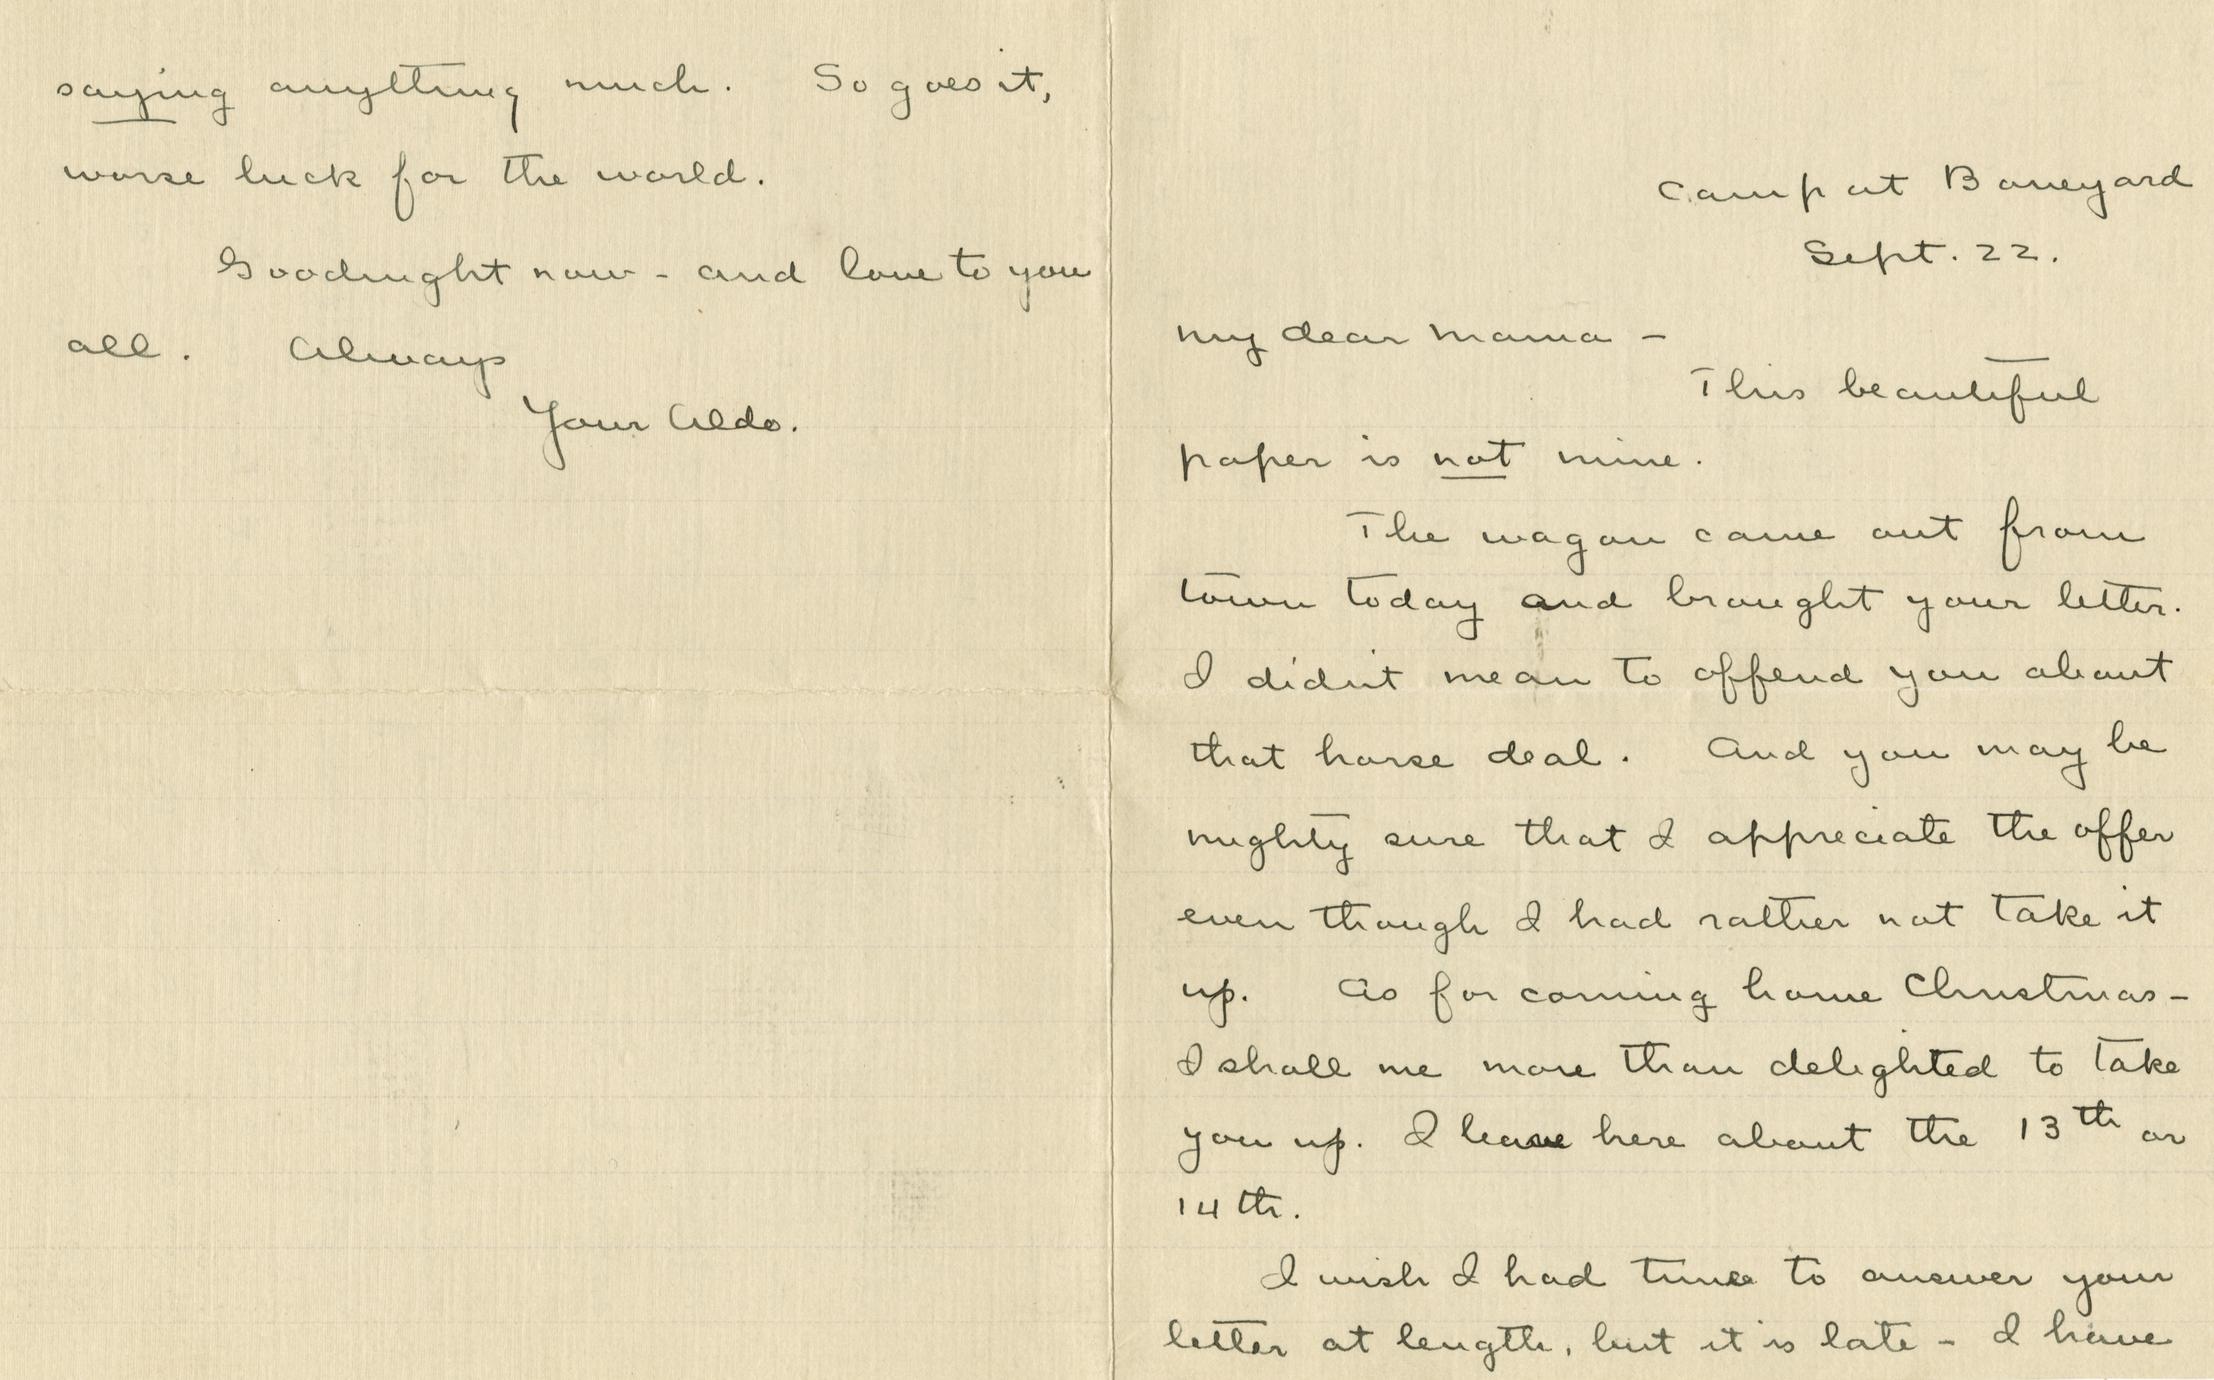 Camp at Boneyard
Sept. 22.
My dear Mama –
This beautiful
paper is not mine.
The wagon came out from
town today and brought your letter.
I didn't mean to offend you about
that horse deal. And you may be
mighty sure that I appreciate the offer
even though I had rather not take it
up. As for coming home Christmas –
I shall me more than delighted to take
you up. I leave here about the 13th or
14th.
I wish I had time to answer your
letter at length, but it is late – I have
saying anything much. So goes it,
worse luck for the world.
Goodnight now – and love to you
all. Always
Your Aldo.